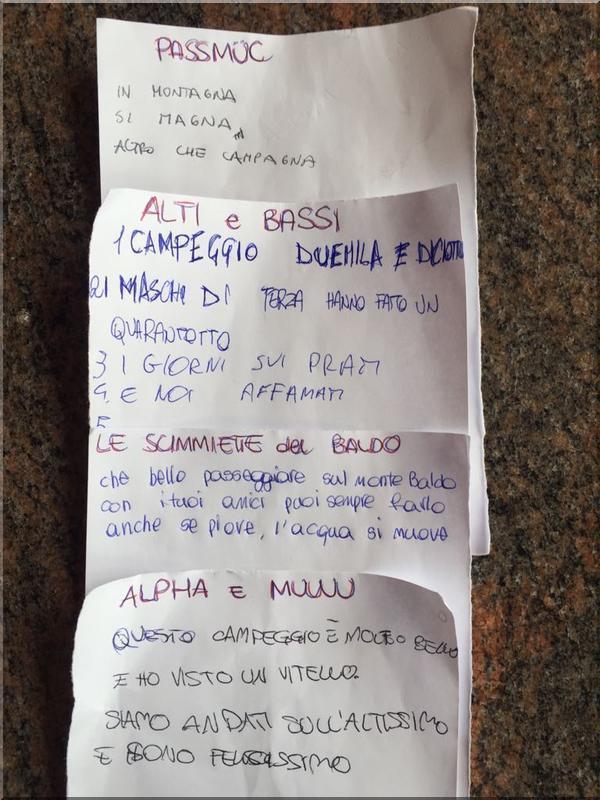 PASSMÜC
IN MONTAGNA
SI MAGNA
ALTRO CHE CAMPAGNA
ALTI e BASSI
1 CAMPEGGIO DUEMILA E DICIOTTO
2 I MASCHI DI TERZA HANNO FATO UN
QUARANTOTTO
3 I GIORNI SUI PRATI
4 E NOI AFFAMATI
5
LE SCIMMIETE del BALDO
che bello passeggiare sul monte Baldo
con i tuoi amici puoi sempre farlo
anche se piove, l'acqua si muove
ALPHA E MUUU
QUESTO CAMPEGGIO È MOLTO BELLO
E HO VISTO UN VITELLO.
SIAMO ANDATI SULL'ALTISSIMO
E SONO FELICISSIMO